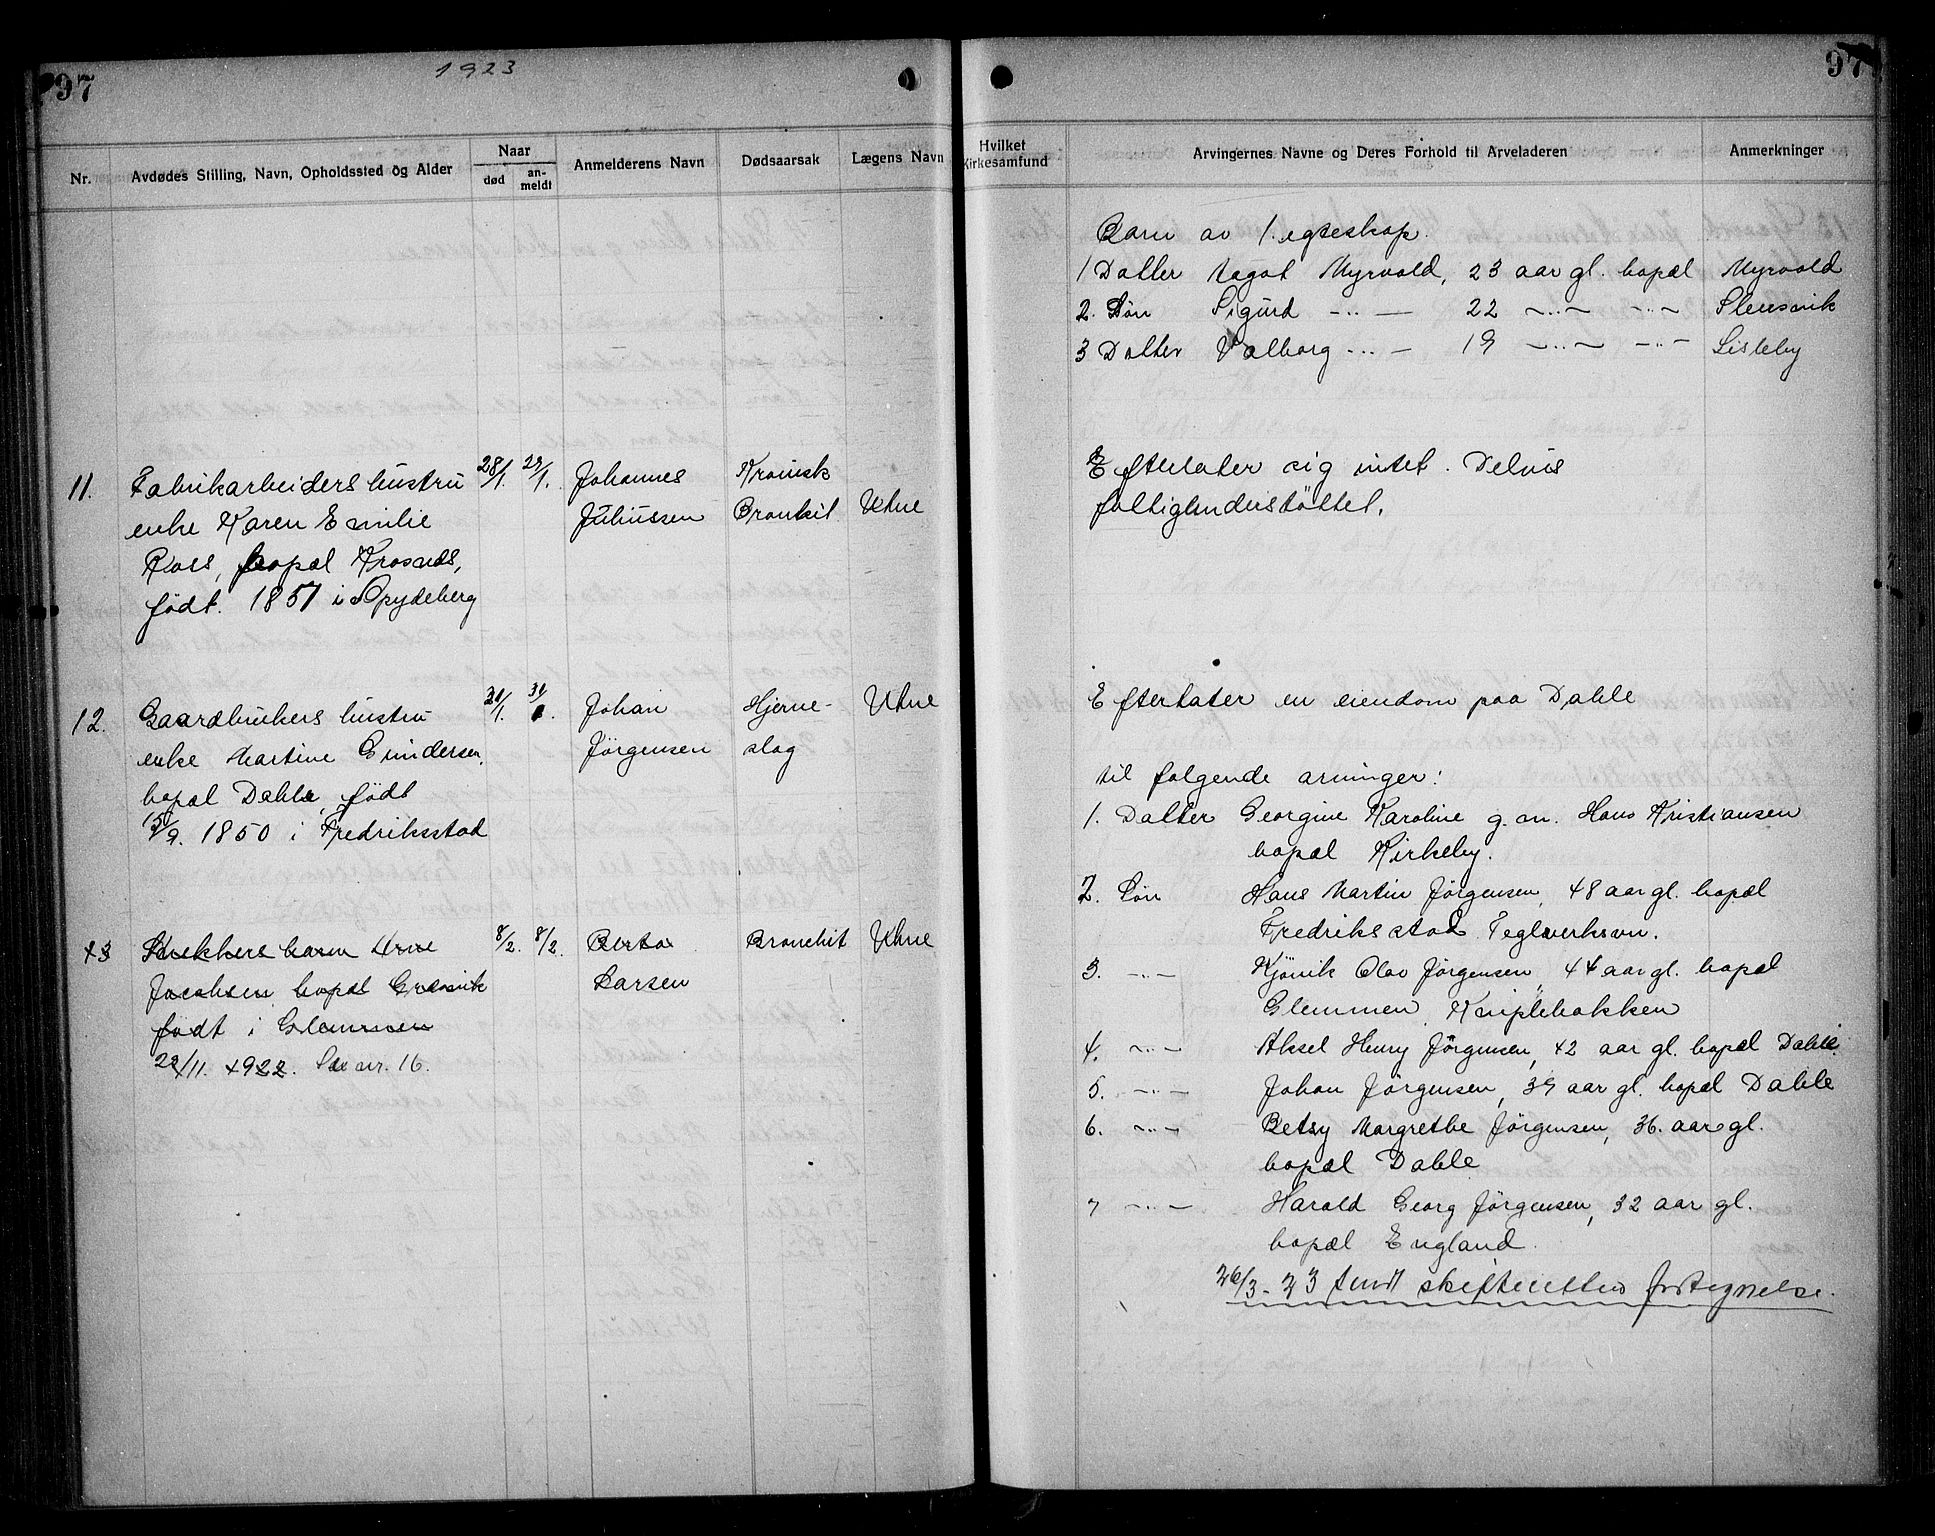 97
1923
97
Nr.
Avdødes Stilling, Navn, Opholdssted og Alder
Naar
død
an-
meldt
Anmelderens Navn
Dødsaarsak
Lægens Navn
Hvilket
Kirkesamfund
Arvingernes Navne og Deres Forhold til Arveladeren
Anmerkninger
Barn av 1. egteskap.
1 Datter Aagot Myrvold, 23 aar gl. bopæl Myrvold
2. Søn Sigurd -"- 22 -"- -"- Slevsvik
3 Datter Valborg -"- 19 -"- -"- Lisleby
11.
Fabrikarbeiders hustru
enke Karen Emilie
Roes, bopæl Krosnes,
født. 1851 i Spydeberg
28/1. 29/1.
Johannes
Juliussen
Kronisk
Bronkit
Uhne
Efterlater sig intet. Delvis
fattigunderstöttet.
12.
Gaardbrukers hustru
enke Martine Gundersen,
bopæl Dahle, født
/9. 1850 i Fredriksstad
30/1. 31/1.
Johan
Jørgensen
Hjerne-
slag
Uhne
Efterlater en eiendom paa Dahle
til følgende arvinger:
1. Datter Georgine Karoline g.m. Hans Kristiansen
bopæl Kirkeby.
2. Søn Hans Martin Jørgensen, 48 aar gl. bopæl
Fredriksstad Teglverksvn.
3. -"- Kjönik Olav Jørgensen, 44 aar gl. bopæl
Glemmen, Kniplebakken
4. -"- Aksel Henry Jørgensen, 42 aar gl. bopæl Dahle.
5. -"- Johan Jørgensen, 39 aar gl. bopæl Dahle
6. -"- Betsy Margrethe Jørgensen, 36. aar gl.
bopæl Dahle
7 -"- Harald Georg Jørgensen, 32 aar gl.
bopæl England.
26/3-23 sendt skifteretten fortegnelse.
13
Snekkers barn Arne
Jacobsen, bopæl Gresvik
født i Glemmen
22/11. 1922. Se nr. 16.
8/2. 8/2.
Berta
Larsen
Bronchit
Uhne